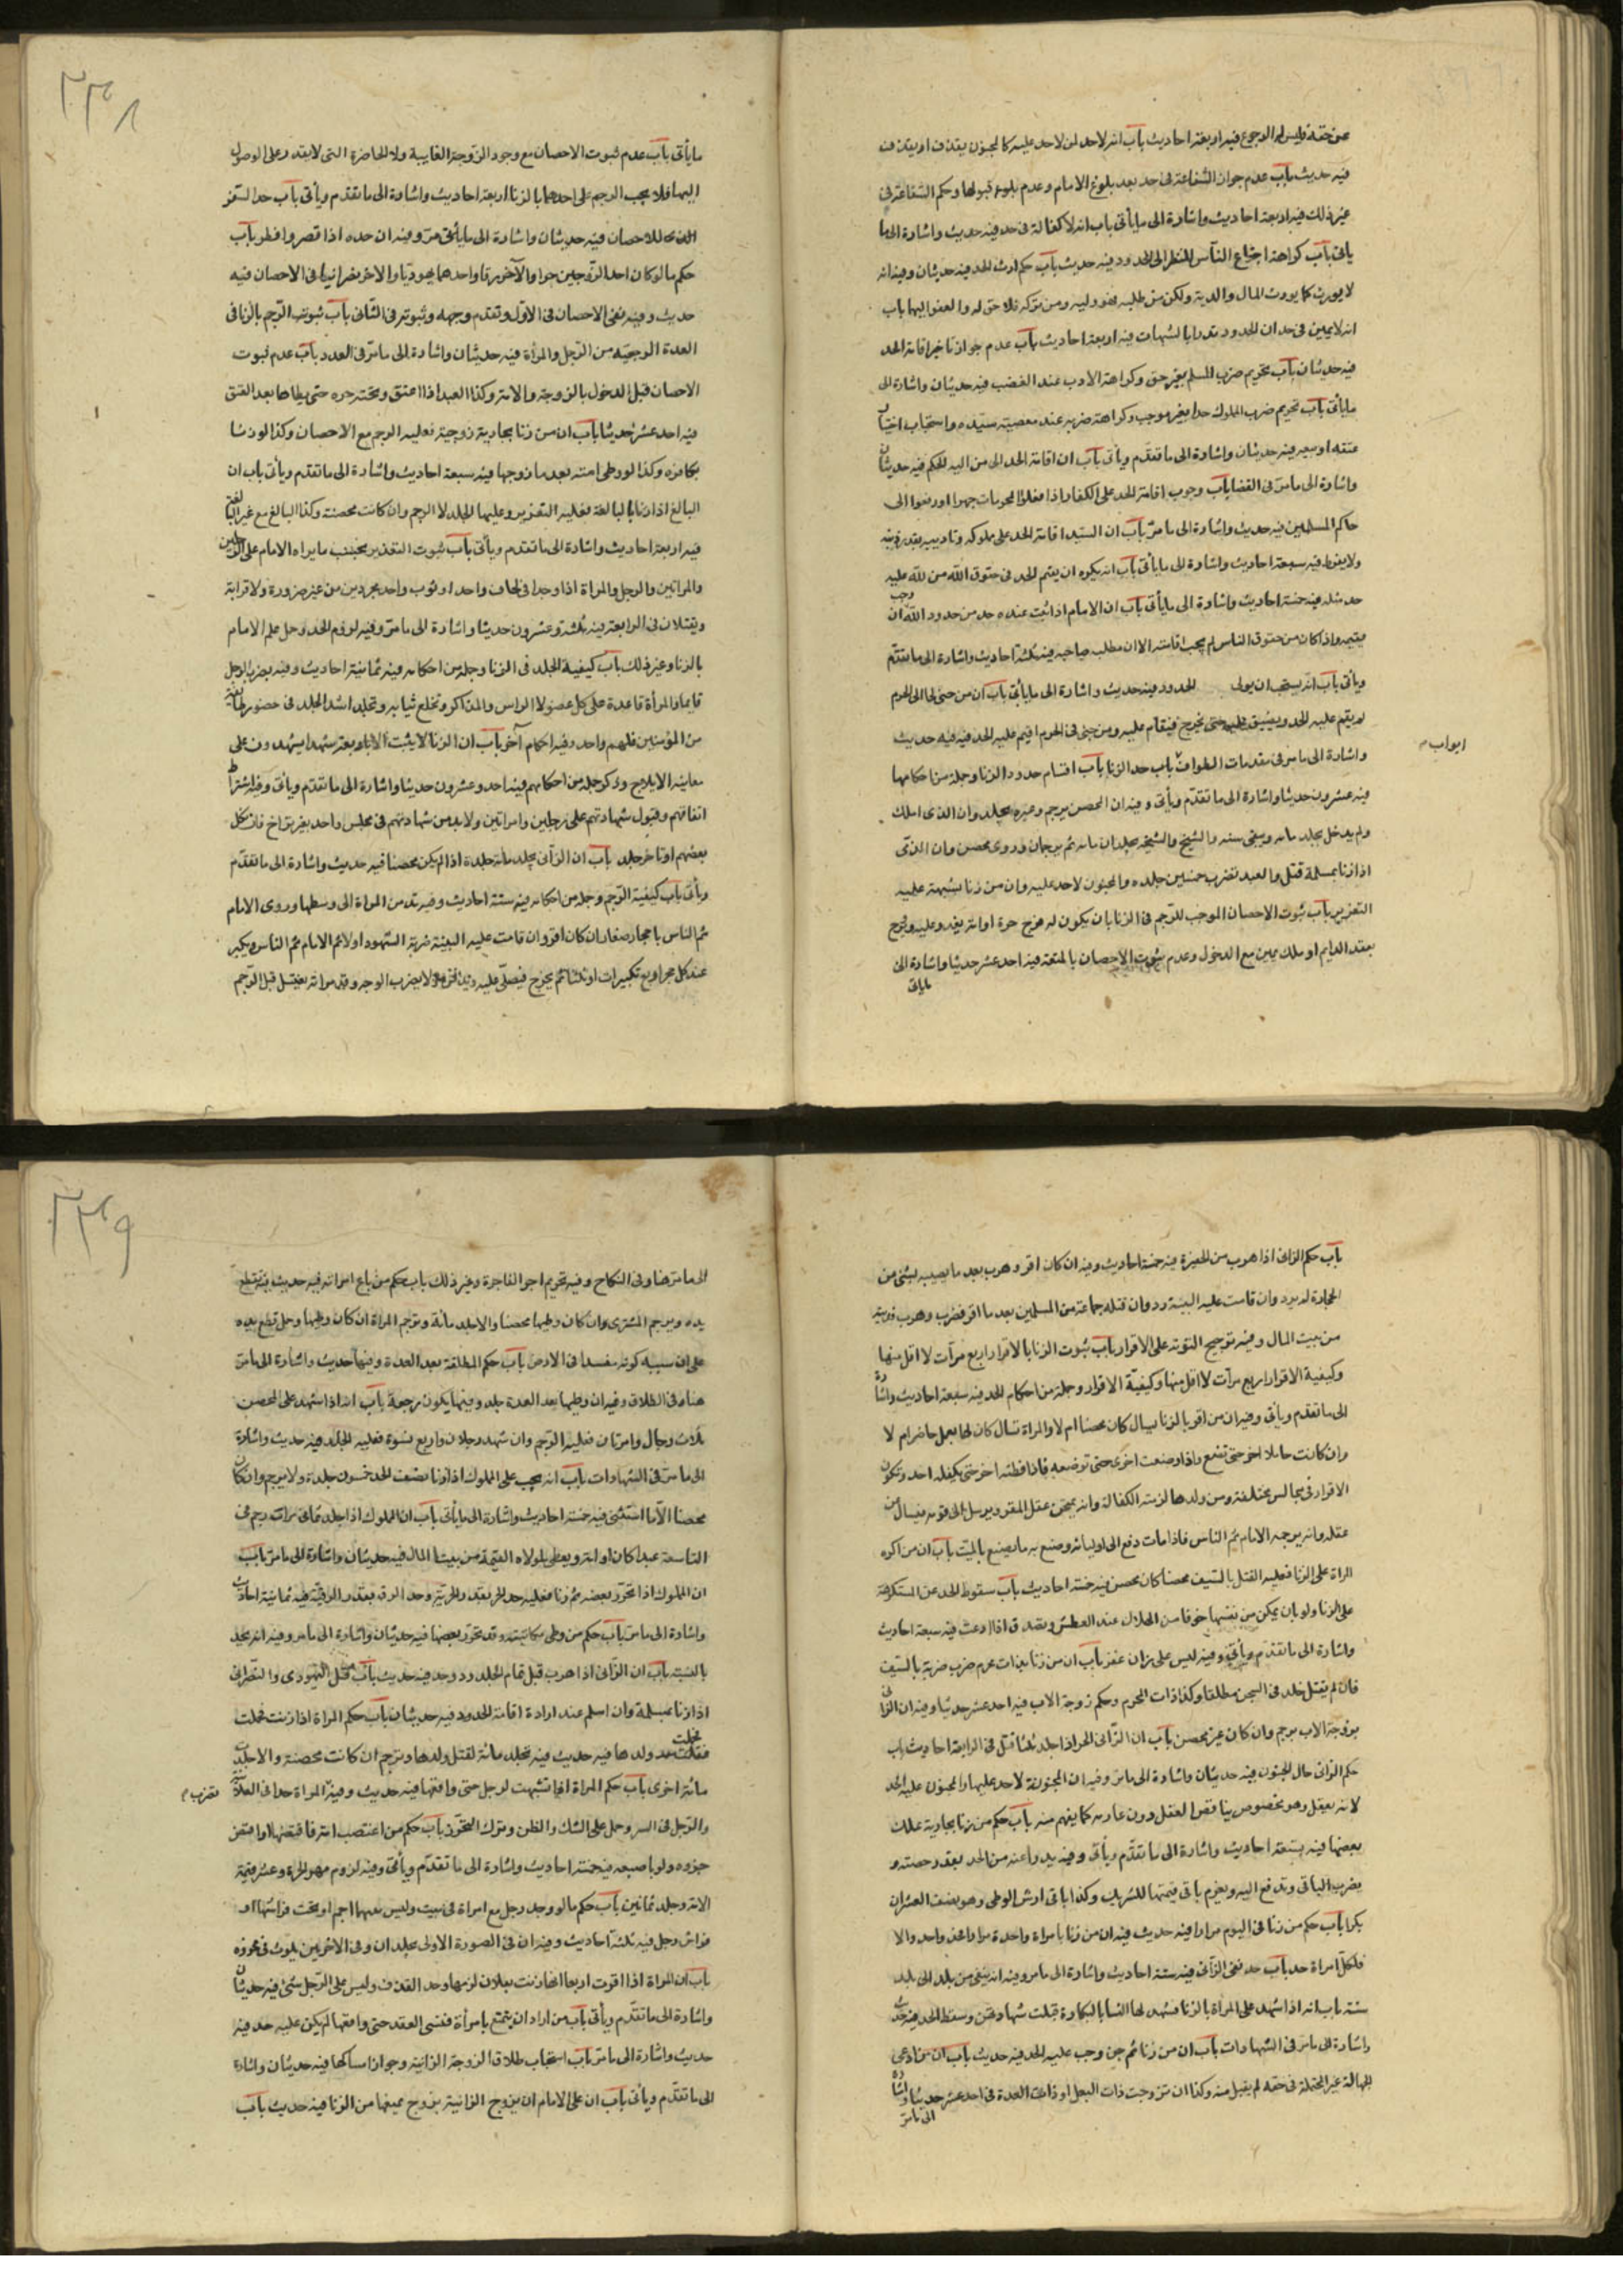 عن حقه وليس له الرجوع فيه اربعة احاديث باب انه لاحد لمن لاحد عليه كالمجنون يقذف او يقذف
فيه حديث باب عدم جواز الشفاعة في حد بعد بلوغ الامام وعدم بلوغ قبولها وحكم الشفاعة في
غير ذلك فيه اربعة احاديث واشارة الى ما يأتي باب انه لا كفالة في حد فيه حديث واشارة الى ما
يأتي باب كراهة اجتماع الناس للنظر الى الحدود فيه حديث باب حكم ارث الحد فيه حديثان وفيه انه
لا يورث كما يورث المال والدية ولكن من طلبه فهو وليه ومن تركه فلا حق له والعفو اليهما باب
انه لا يمين في حد ان الحدود تدرأ بالشبهات فيه اربعة احاديث باب عدم جواز تأخير اقامة الحد
فيه حديثان باب تحريم ضرب المسلم بغير حق وكراهة الادب عند الغضب فيه حديثان واشارة الى
ما يأتي باب تحريم ضرب المملوك حدا بغير موجب وكراهة ضربه عند معصية سيده واستحباب اختيار
عتقه او بيعه فيه حديثان واشارة الى ما تقدم ويأتي باب ان اقامة الحد الى من اليه الحكم فيه حديثان
واشارة الى ما مر في القضا باب وجوب اقامة الحد على الكفار اذا فعلوا المحرمات جهرا او رفعوا الى
حاكم المسلمين فيه حديث واشارة الى ما مر باب ان للسيد اقامة الحد على مملوكه وتاديبه بقدر ذنبه
ولا يفرط فيه سبعة احاديث واشارة الى ما يأتي باب انه يكره ان يقيم الحد في حقوق الله من لله عليه
حد مثله فيه خمسة احاديث واشارة الى ما يأتي باب ان الامام اذا ثبت عنده حد من حدود الله وجب ان
يقيمه واذا كان من حقوق الناس لم يجب اقامته الا ان يطلب صاحبه فيه ثلثة احاديث واشارة الى ما تقدم
ويأتي باب انه يستحب ان يولى الحدود فيه حديث واشارة الى ما يأتي باب ان من جنى لجا الى الحرم
لم يقم عليه الحد ويضيق عليه حتى يخرج فيقام عليه ومن جنى في الحرم اقيم عليه الحد فيه حديث
واشارة الى ما مر في مقدمات الطواف باب حد الزنا باب اقسام حدود الزنا وجملة من احكامها
ابواب
فيه عشرون حديثا واشارة الى ما تقدم ويأتي وفيه ان المحصن يرجم وغيره يجلد وان الذي املك
ولم يدخل يجلد مائة وينفى سنة والشيخ والشيخة يجلدان مائة ثم يرجمان وروي محصن وان الذمي
اذا زنا بمسلمة قتل والعبد يضرب خمسين جلدة والمجنون لاحد عليه وان من زنا بشبهة عليه
التعزير باب ثبوت الاحصان الموجب للرجم في الزنا بان يكون له فرج حرة او امة يغدو عليه ويروح
بعقد الدايم او ملك يمين مع الدخول وعدم ثبوت الاحصان بالمتعة فيه احد عشر حديثا واشارة الى
ما يأتي
٣٣٨
ما يأتي باب عدم ثبوت الاحصان مع وجود الزوجة الغايبة ولا الحاضرة التي لا يقدر على الوصول
اليها فلا يجب الرجم على احدهما بالزنا اربعة احاديث واشارة الى ما تقدم ويأتي باب حد السفر
المنافي للاحصان فيه حديثان واشارة الى ما يأتي مر وفيه ان حده اذا قصر وافطر باب
حكم ما لو كان احد الزوجين حرا والآخر رقا واحدهما يهوديا والاخر نصرانيا في الاحصان فيه
حديث وفيه نفي الاحصان في الاول وتقدم وجهه وثبوته في الثاني باب ثبوت الرجم بالزنا في
العدة الرجعية من الرجل والمرأة فيه حديثان واشارة الى ما مر في العدد باب عدم ثبوت
الاحصان قبل الدخول بالزوجة والامة وكذا العبد اذا اعتق وتحته حرة حتى يطاها بعد العتق
فيه احد عشر حديثا باب ان من زنا بجارية زوجته فعليه الرجم مع الاحصان وكذا لو زنا
بكافرة وكذا لو وطى امته بعد ما زوجها فيه سبعة احاديث واشارة الى ما تقدم ويأتي باب ان
البالغ اذا زنا بالبالغة فعليه التعزير وعليها الجلد لا الرجم وان كانت محصنة وكذا البالغ مع غير البالغة
فيه اربعة احاديث واشارة الى ما تقدم ويأتي باب ثبوت التعزير بحسب ما يراه الامام على الرجلين
والمراتين والرجل والمراة اذا وجدا في لحاف واحد او ثوب واحد مجردين من غير ضرورة ولا قرابة
ويقتلان في الرابعة فيه ثلثة وعشرون حديثا واشارة الى ما مر وفيه لزوم الحد وحمل على علم الامام
بالزنا وغير ذلك باب كيفية الجلد في الزنا وجملة من احكامه فيه ثمانية احاديث وفيه يضرب الرجل
قايما والمرأة قاعدة على كل عضو الا الراس والمذاكر وتخلع ثيابه ويجلد اشد الجلد في حضور طائفة
من المؤمنين فلهم واحد وفيه احكام آخر باب ان الزنا لا يثبت الا باربعة شهدا يشهدون على
معاينة الايلاج وذكر جملة من احكامهم فيه احد وعشرون حديثا واشارة الى ما تقدم ويأتي وفيه اشتراط
اتفاقهم وقبول شهادتهم على رجلين وامراتين ولا بد من شهادتهم في مجلس واحد بغير تراخ فان نكل
بعضهم او تأخر جلد باب ان الزاني يجلد مائة جلدة اذا لم يكن محصنا فيه حديث واشارة الى ما تقدم
ويأتي باب كيفية الرجم وجملة من احكامه فيه ستة احاديث وفيه تدفن المراة الى وسطها وروى الامام
ثم الناس باحجار صغار ان كان اقر وان قامت عليه البينة ضربه الشهود اولا ثم الامام ثم الناس ويكبر
عند كل حجر اربع تكبيرات او ثلثا ثم يخرج فيصلى عليه ويدفن ولا يضرب الوجه وقدم انه يغتسل قبل الرجم
باب حكم الزاني اذا هرب من الحفيرة فيه خمسة احاديث وفيه ان كان اقر وهرب بعد ما يصيبه بشئ من
الحجارة لم يرد وان قامت عليه البينة رد وان قتله جماعة من المسلمين بعد ما اقر فضرب وهرب فديته
من بيت المال وفيه ترجيح التوبة على الاقرار باب ثبوت الزنا بالاقرار اربع مرات لا اقل منها
وكيفية الاقرار اربع مرات لا اقل منها وكيفية الاقرار وجملة من احكام الحد فيه سبعة احاديث واشارة
الى ما تقدم ويأتي وفيه ان من اقر بالزنا يسال كان محصنا ام لا والمراة تسال كان لها بعل حاضر ام لا
وان كانت حاملا اخر حتى تضع واذا وضعت اخرى حتى ترضعه فاذا فطمته اخر حتى يكفله احد وتكون
الاقرار في مجالس مختلفة ومن ولدها لزمته الكفالة وانه يمتحن عقل المقر ويرسل الى قومه فيسال عن
عقله وانه يرجمه الامام ثم الناس فاذا مات دفع الى اوليائه وصنع به ما يصنع بالميت باب ان من اكره
المراة على الزنا فعليه القتل بالسيف محصنا كان محصن فيه خمسة احاديث باب سقوط الحد عن المستكرهة
على الزنا ولو بان يمكن من نفسها خوفا من الهلاك عند العطش وتصدق اذا ادعت فيه سبعة احاديث
واشارة الى ما تقدم ويأتي وفيه ليس على زان عقر باب ان من زنا بذات محرم ضرب ضربة بالسيف
فان لم يقتل خلد في السجن مطلقا وكذا ذات المحرم وحكم زوجة الاب فيه احد عشر حديثا وفيه ان الزاني
بزوجة الاب يرجم وان كان غير محصن باب ان الزاني الحر اذا جلد ثلثا قتل في الرابعة احاديث باب
حكم الزاني حال الجنون فيه حديثان واشارة الى ما مر وفيه ان المجنونة لا حد عليها والمجنون عليه الحد
لانه يعقل وهو مخصوص بناقص العقل دون عادمه كما يفهم منه باب حكم من زنا بجارية يملك
بعضها فيه تسعة احاديث واشارة الى ما تقدم ويأتي وفيه يدرأ عنه من الحد بقدر حصته و
يضرب الباقي وتدفع اليه ويغرم باقي قيمتها للشريك وكذا باقي ارش الوطى وهو نصف العشر ان
بكرا باب حكم من زنا في اليوم مرارا فيه حديث فيه ان من زنا بامراة واحدة مرارا فحد واحد والا
فلكل امراة حد باب حد نفي الزاني فيه ستة احاديث واشارة الى ما مر وفيه انه ينفى من بلد الى بلد
سنة باب انه اذا شهد على المراة بالزنا فشهد لها النسا بالبكارة قبلت شهادتهن وسقط الحد فيه حديث
واشارة الى ما مر في الشهادات باب ان من زنا ثم جن وجب عليه الحد فيه حديث باب ان من ادعى
الجهالة غير المحتملة في حقه لم يقبل منه وكذا ان تزوجت ذات البعل او ذات العدة في احد عشر حديثا واشارة
الى ما مر
٣٣٩
الى ما مر هنا وفي النكاح وفيه تحريم اجر الفاجرة وغير ذلك باب حكم من باع امراته فيه حديث فيه تقطع
يده ويرجم المشترى وان كان وطيها محصنا والا جلد مائة وترجم المراة ان كان وطيها وحمل قطع يده
على ان سببه كونه مفسدا في الارض باب حكم المطلقة بعد العدة وفيها حديث واشارة الى ما مر
هنا وفي الطلاق وفيه ان وطيها بعد العدة جلد وفيها يكون رجعة باب انه اذا شهد على المحصن
ثلاث رجال وامرتان فعليه الرجم وان شهد رجلان واربع نسوة فعليه الجلد فيه حديث واشارة
الى ما مر في الشهادات باب انه يجب على المملوك اذا زنا نصف الحد خمسون جلدة ولا يرجم وان كان
محصنا الا ما استثنى فيه خمسة احاديث واشارة الى ما يأتي باب ان المملوك اذا جلد ثماني مرات رجم في
التاسعة عبدا كان او امة ويعطى مولاه القيمة من بيت المال فيه حديثان واشارة الى ما مر باب
ان المملوك اذا تحرر بعضه ثم زنا فعليه حد الحر بقدر الحرية وحد الرق بقدر الرقية فيه ثمانية احاديث
واشارة الى ما مر باب حكم من وطى مكاتبته وقد تحرر بعضها فيه حديثان واشارة الى ما مر وفيه انه يحد
بالنسبة باب ان الزاني اذا هرب قبل تمام الجلد رد وحد فيه حديث باب قتل اليهودي والنصراني
اذا زنا بمسلمة وان اسلم عند ارادة اقامة الحدود فيه حديثان باب حكم المراة اذا زنت فحملت
فقتلت ولدها فيه حديث فيه تجلد مائة لقتل ولدها وترجم ان كانت محصنة والا جلدت
مائة اخرى باب حكم المراة اذا تشبهت لرجل حتى واقعها فيه حديث وفيه تضرب المراة حدا في العلانية
والرجل في السر وحمل على الشك والظن وترك التحرز باب حكم من اغتصب امة فاقتضها او اقتض
حرة ولو باصبعه فيه خمسة احاديث واشارة الى ما تقدم ويأتي وفيه لزوم مهر الحرة وعشر قيمة
الامة وجلد ثمانين باب حكم ما لو وجد رجل مع امراة في بيت وليس بينهما رحم او تحت فراشها او
فراش رجل فيه ثلثة احاديث وفيه ان في الصورة الاولى يجلدان وفي الاخريين يلوث في مخروة
باب ان المراة اذا اقرت اربعا انها زنت بفلان لزمها وحد القذف وليس على الرجل شئ فيه حديثان
واشارة الى ما تقدم ويأتي باب من اراد ان يتمتع بامرأة فنسى العقد حتى واقعها لم يكن عليه حد فيه
حديث واشارة الى ما مر باب استحباب طلاق الزوجة الزانية وجواز امساكها فيه حديثان واشارة
الى ما تقدم ويأتي باب ان على الامام ان يزوج الزانية بزوج يمنعها من الزنا فيه حديث باب